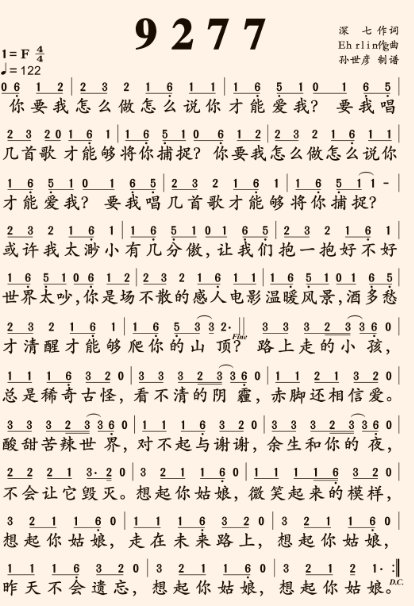 9277
深 七 作词
Ehrling作曲
孙世彦 制谱
1=F 4/4
♩=122
0 6 1 2 | 2 3 2 1 6 1 1 | 1 6 5 1 0 1 6 5 |
你要我怎么做怎么说你才能爱我? 要我唱
2 3 2 0 1 6 1 | 1 6 5 1 0 6 1 2 | 2 3 2 1 6 1 1 |
几首歌 才能够将你捕捉? 你要我怎么做怎么说你
1 6 5 1 0 1 6 5 | 2 3 2 1 6 1 | 1 6 5 1 1 - |
才能爱我? 要我唱几首歌才能够将你捕捉?
2 3 2 1 6 1 | 1 6 5 1 0 1 6 5 | 2 3 2 1 6 1 |
或许我太渺小有几分傲,让我们抱一抱好不好
1 6 5 1 0 6 1 2 | 2 3 2 1 6 1 1 | 1 6 5 1 0 1 6 5 |
世界太吵,你是场不散的感人电影温暖风景,酒多愁
2 3 2 1 6 1 | 1 6 5 3 3 2· | 3 3 3 2 3 3 6 0 |
才清醒才能够爬你的山顶? 路上走的小孩,
Fine
1 1 1 6 3 2 0 | 3 3 3 2 3 3 6 0 | 1 1 2 1 3 2 0 |
总是稀奇古怪,看不清的阴霾,赤脚还相信爱。
3 3 3 2 3 3 6 0 | 1 1 1 6 3 2 0 | 3 3 3 2 3 3 6 0 |
酸甜苦辣世界,对不起与谢谢,余生和你的夜,
2 2 2 1 3· 2 0 | 3 2 1 1 6 0 | 1 1 1 1 6 3 2 0 |
不会让它毁灭。想起你姑娘,微笑起来的模样,
3 2 1 1 6 0 | 1 1 1 6 3 2 0 | 3 2 1 1 6 0 |
想起你姑娘,走在未来路上,想起你姑娘,
1 1 1 6 3 2 0 | 3 2 1 1 6 0 | 3 2 1 1 2 · :‖
昨天不会遗忘,想起你姑娘,想起你姑娘。
D.C.